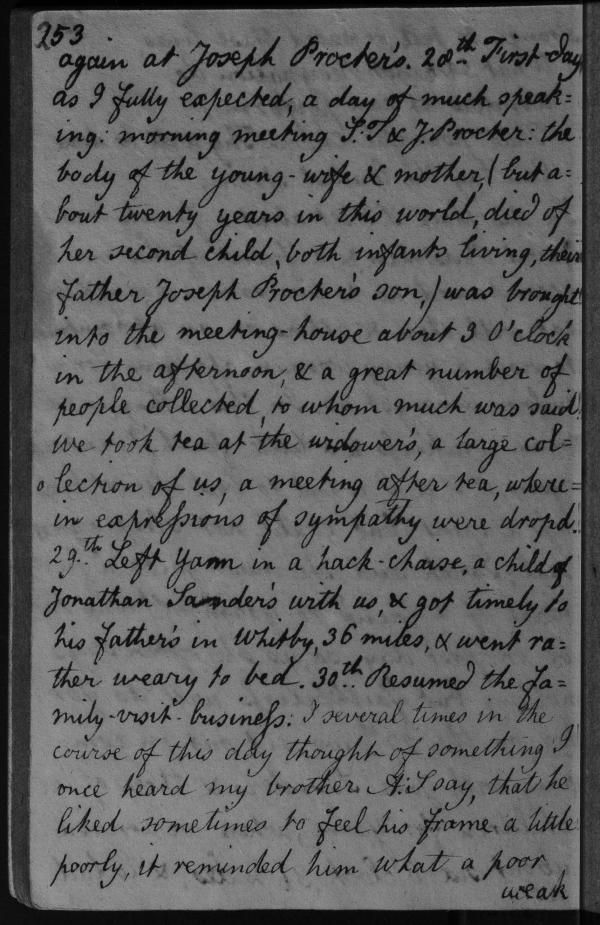 253
again at Joseph Procter's. 28th First-day
as I fully expected, a day of much speak=
ing: morning meeting S:T & J:Procter: the
body of the young-wife & mother, (but a=
bout twenty years in this world, died of
her second child, both infants living, their
father Joseph Procter's son,) was brought
into the meeting-house about 3 O'clock
in the afternoon, & a great number of
people collected, to whom much was said:
we took tea at the widower's, a large col=
lection of us, a meeting after tea, where=
in expressions of sympathy were dropd.
29th Left Yarm in a hack-chaise, a child of
Jonathan Sanders's with us, & got timely to
his father's in Whitby, 36 miles, & went ra=
ther weary to bed. 30th Resumed the fa=
mily-visit-business: I several times in the
course of this day thought of something I
once heard my brother A:S say, that he
liked sometimes to feel his frame a little
poorly, it reminded him what a poor
weak